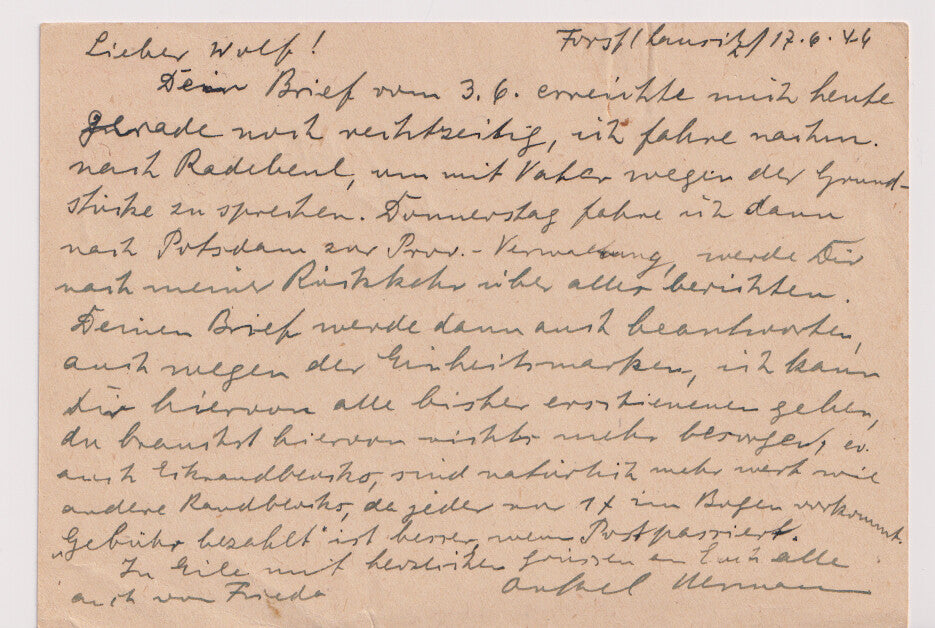 Forst (Lausitz) 17.6.46
Lieber Wolf!
Dein Brief vom 3.6. erreichte mich heute
gerade noch rechtzeitig, ich fahre nachm.
nach Radebeul, um mit Vater wegen der Grund-
stücke zu sprechen. Donnerstag fahre ich dann
nach Potsdam zur Prov.-Verwaltung, werde Dir
nach meiner Rückkehr über alles berichten.
Deinen Brief werde dann auch beantworten,
auch wegen der Einheitsmarken, ich kann
Dir hiervon alle bisher erschienenen geben,
du brauchst hiervon nichts mehr besorgen, ev.
auch Eckrandbereiche, sind natürlich mehr wert wie
andere, da jeder nur 1x im Bogen vorkommt.
"Gebühr bezahlt" ist besser, wenn Postpassiert.
In Eile mit herzlichen Grüssen an Euch alle
auch von Frieda Onkel Hermann